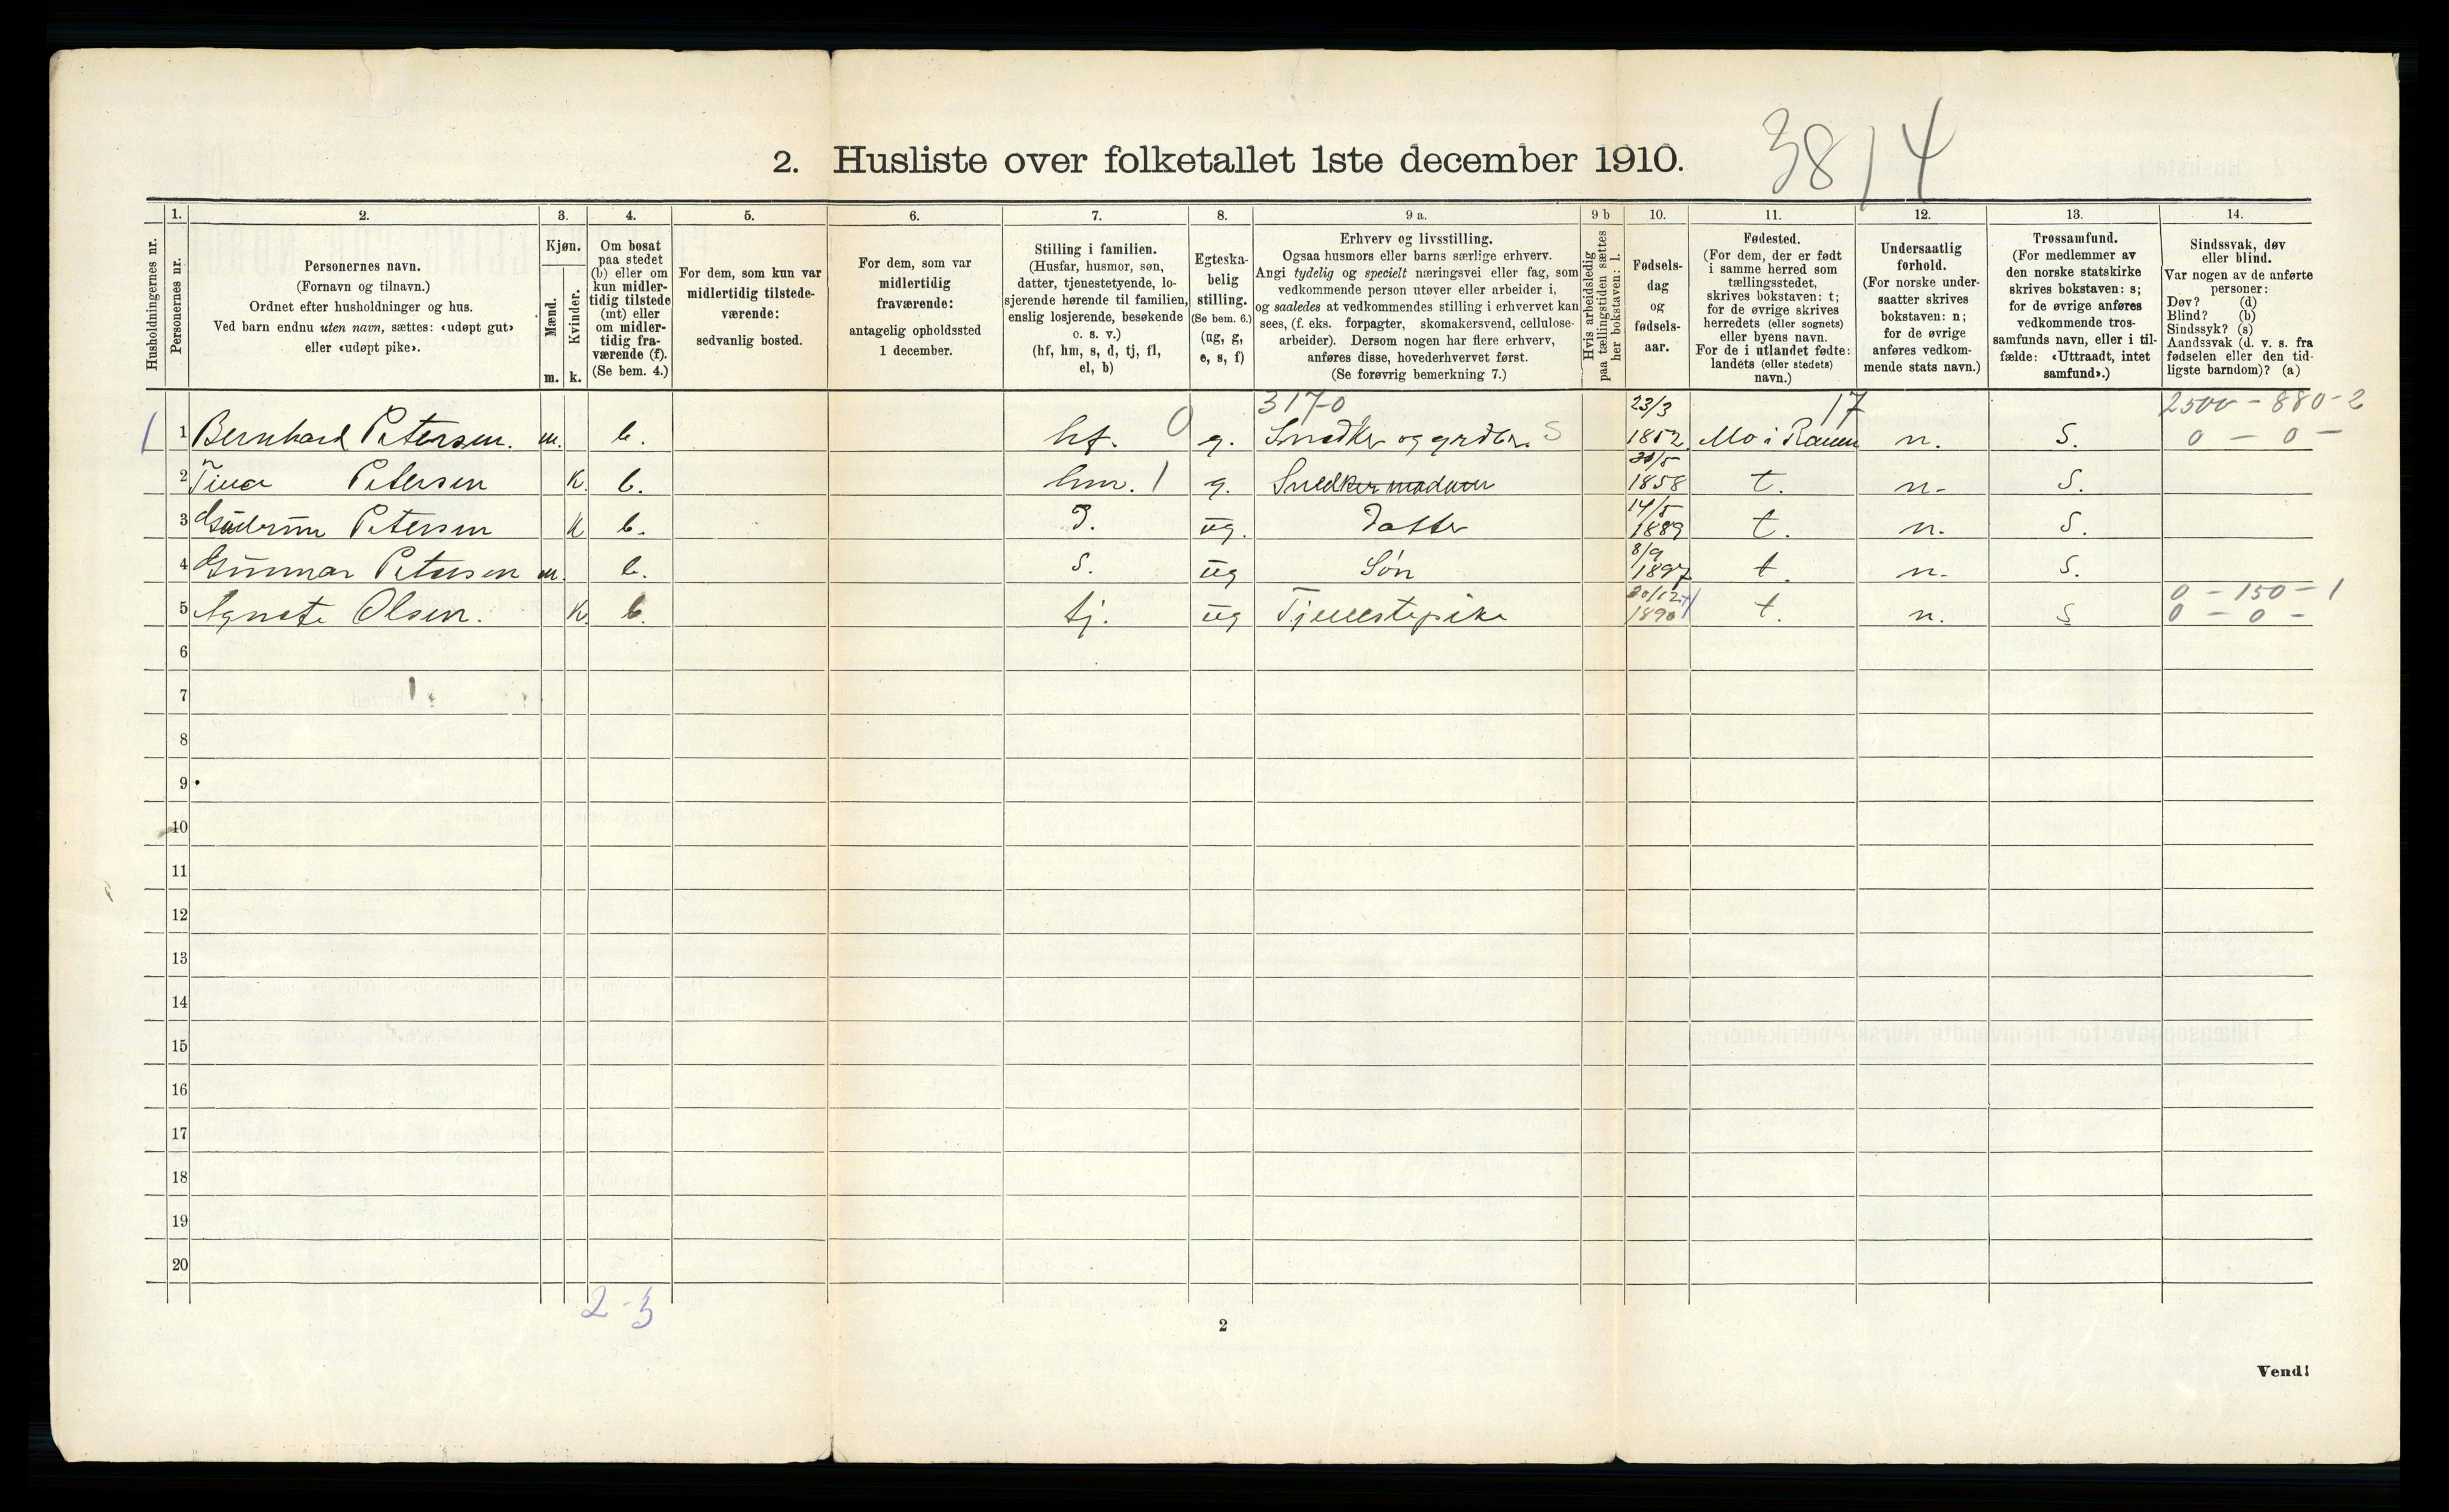 2. Husliste over folketallet 1ste december 1910.
3814
Husholdningernes nr.
1.
Personernes nr.
2.
Personernes navn.
(Fornavn og tilnavn.)
Ordnet efter husholdninger og hus.
Ved barn endnu uten navn, sættes: «udøpt gut»
eller «udøpt pike».
3.
Kjøn.
Mænd.
Kvinder.
m. k.
4.
Om bosat
paa stedet
(b) eller om
kun midler-
tidig tilstede
(mt) eller
om midler-
tidig fra-
værende (f).
(Se bem. 4.)
5.
For dem, som kun var
midlertidig tilstede-
værende:
sedvanlig bosted.
6.
For dem, som var
midlertidig
fraværende:
antagelig opholdssted
1 december.
7.
Stilling i familien.
(Husfar, husmor, søn,
datter, tjenestetyende, lo-
sjerende hørende til familien,
enslig losjerende, besøkende
o. s. v.)
(hf, hm, s, d, tj, fl,
el, b)
8.
Egteska-
belig
stilling.
(Se bem. 6.)
(ug, g,
e, s, f)
9 a.
Erhverv og livsstilling.
Ogsaa husmors eller barns særlige erhverv.
Angi tydelig og specielt næringsvei eller fag, som
vedkommende person utøver eller arbeider i,
og saaledes at vedkommendes stilling i erhvervet kan
sees, (f. eks. forpagter, skomakersvend, cellulose-
arbeider). Dersom nogen har flere erhverv,
anføres disse, hovederhvervet først.
(Se forøvrig bemerkning 7.)
9 b
Hvis arbeidsledig
paa tællingstiden sættes
her bokstaven: l.
10.
Fødsels-
dag
og
fødsels-
aar.
11.
Fødested.
(For dem, der er født
i samme herred som
tællingsstedet,
skrives bokstaven: t;
for de øvrige skrives
herredets (eller sognets)
eller byens navn.
For de i utlandet fødte:
landets (eller stedets)
navn.)
12.
Undersaatlig
forhold.
(For norske under-
saatter skrives
bokstaven: n;
for de øvrige
anføres vedkom-
mende stats navn.)
13.
Trossamfund.
(For medlemmer av
den norske statskirke
skrives bokstaven: s;
for de øvrige anføres
vedkommende tros-
samfunds navn, eller i til-
fælde: «Uttraadt, intet
samfund».)
14.
Sindssvak, døv
eller blind.
Var nogen av de anførte
personer:
Døv? (d)
Blind? (b)
Sindssyk? (s)
Aandssvak (d. v. s. fra
fødselen eller den tid-
ligste barndom)? (a)
3170 23/3 17 2500 - 880 - 2
1 1 Bernhard Petersen. m. b. hf. 0 g. Snedker og grdbr. S 1852 Mo i Ranen n. S. 0 - 0 -
2 Tina Petersen K. b. hm. 1 g. Snedkermadam 1858 t. n. S.
14/5
3 Gudrun Petersen K b. D. ug. Datter 1889 t. n. S.
8/9
4 Gunnar Petersen m. b. S. ug Søn 1897 t. n. S.
30/12 0 - 150 - 1
5 Agnete Olsen. K. b. tj. ug Tjenestepike 1890 t. n. S 0 - 0 -
6
7
8
9
10
11
12
13
14
15
16
17
18
19
20
2-3
2
Vend!